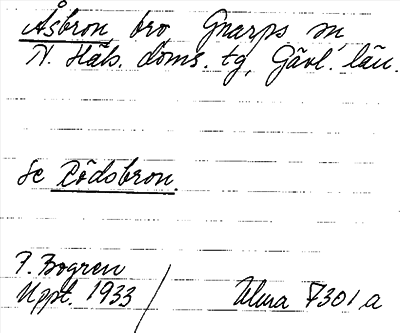 Åsbron bro, Gnarps sn,
N. Häls. doms. tg, Gävl. län.
Se Rödsbron.
F. Bogren
Uppt. 1933 / Ulma 7301 a